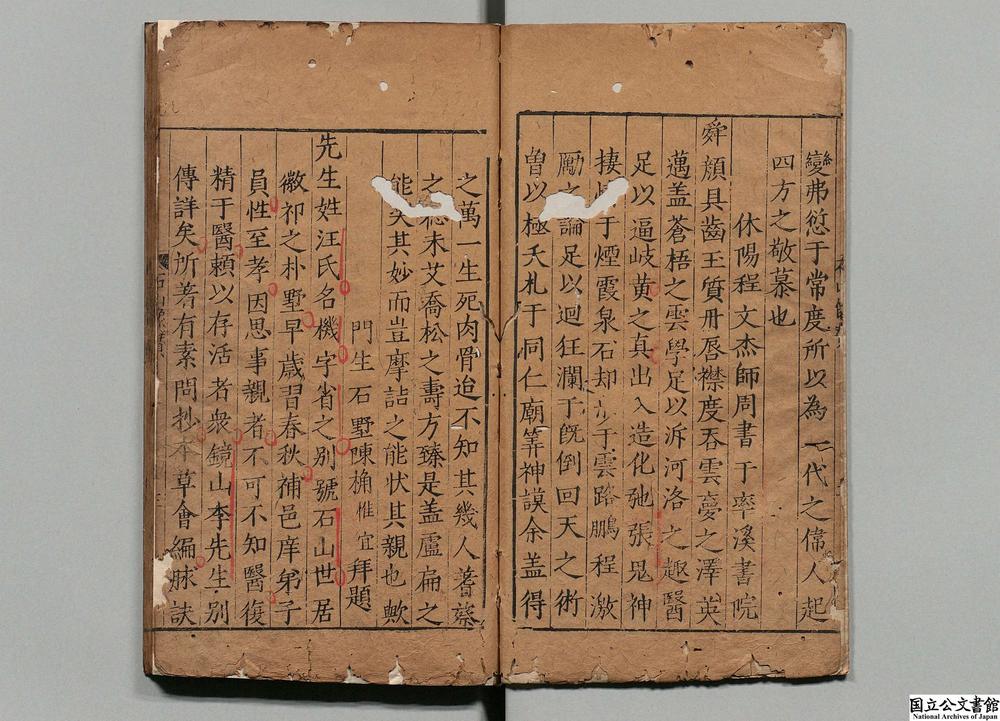 變弗愆于常度所以為一代之偉人起
四方之敬慕也
休陽程文杰師周書于率溪書院
舜顏具齒玉質丹唇襟度吞雲夢之澤英
邁蓋蒼梧之雲學足以泝河洛之趣醫
足以逼岐黃之真出入造化弛張鬼神
棲于煙霞泉石却于雲路鵬程激
勵之論足以迴狂瀾于旣倒回天之術
曾以極夭札于同仁廟筭神謨余盖得
之萬一生死肉骨迨不知其幾人蓍蔡
之未艾喬松之壽方臻是盖盧扁之
能矣其妙而豈摩詰之能状其親也歟
門生石墅陳桷惟宜拜題
先生姓汪氏名機字省之別號石山世居
徽祁之朴墅早歲習春秋補邑庠弟子
員性至孝因思事親者不可不知醫復
精于醫頼以存活者衆鏡山李先生別
傳詳矣所著有素問抄本草會編脉訣
国立公文書館
National Archives of Japan